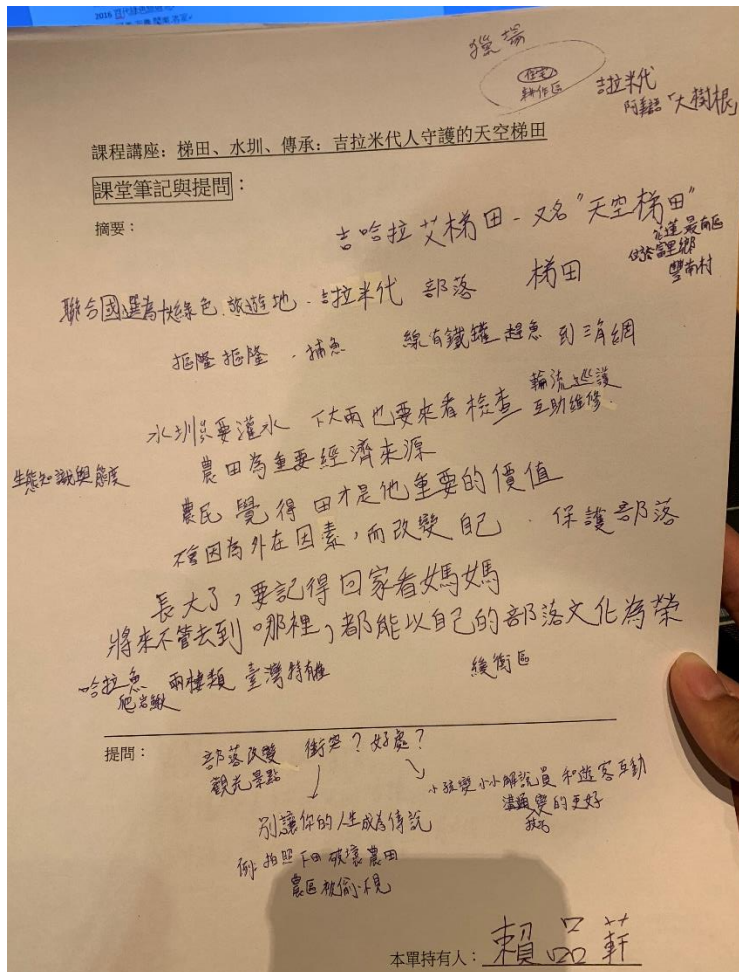 獵場
住宅
耕作區
吉拉米代
阿美語「大樹根」
課程講座：梯田、水圳、傳承：吉拉米代人守護的天空梯田
課堂筆記與提問：
摘要：
吉哈拉艾梯田 - 又名"天空梯田"
花蓮最南區
位於富里鄉
豐南村
聯合國選為 綠色旅遊地．吉拉米代 部落 梯田
摳隆摳隆．捕魚 線有鐵罐 趕魚 到三角網
水圳 要灌水 下大雨也要來看檢查 輪流巡護
互助維修．
農田為重要經濟來源
生態知識與態度
農民 覺得 田才是他重要的價值
不會因為外在因素，而改變自己．保護部落
長大了，要記得回家看媽媽
將來不管去到哪裡，都能以自己的部落文化為榮
哈拉魚 兩棲類 臺灣特有種 緩衝區
爬岩鰍
提問：
部落改變 衝突？好處？
觀光景點
小孩變小小解說員 和遊客互動
溝通 變的更好
別讓你的人生成為傳說
例：拍照下田 破壞農田
農區被偷不見
本單持有人：賴品軒